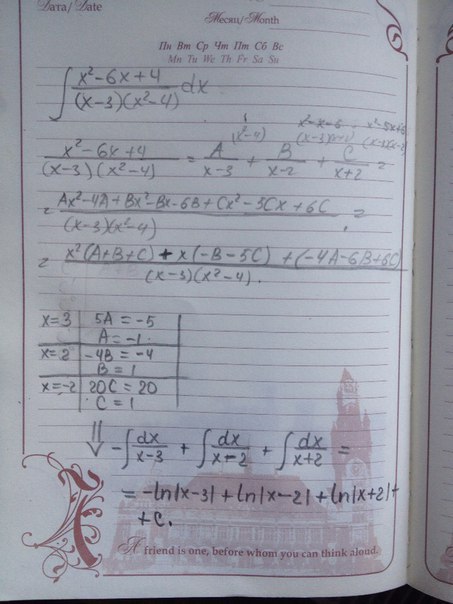 Дата/Date
Месяц/Month
Пн Вт Ср Чт Пт Сб Вс
Mn Tu We Th Fr Sa Su
∫ (x²-6x+4)/((x-3)(x²-4)) dx
(x²-6x+4)/((x-3)(x²-4)) = A/(x-3) + B/(x-2) + C/(x+2) =
= (Ax²-4A+Bx²-Bx-6B+Cx²-5Cx+6C)/((x-3)(x²-4)) =
= (x²(A+B+C) + x(-B-5C) + (-4A-6B+6C))/((x-3)(x²-4)).
x=3 | 5A = -5
A = -1
x=2 | -4B = -4
B = 1
x=-2 | 20C = 20
C = 1
⇓ -∫ dx/(x-3) + ∫ dx/(x-2) + ∫ dx/(x+2) =
= -ln|x-3| + ln|x-2| + ln|x+2| +
+c.
A friend is one, before whom you can think aloud.